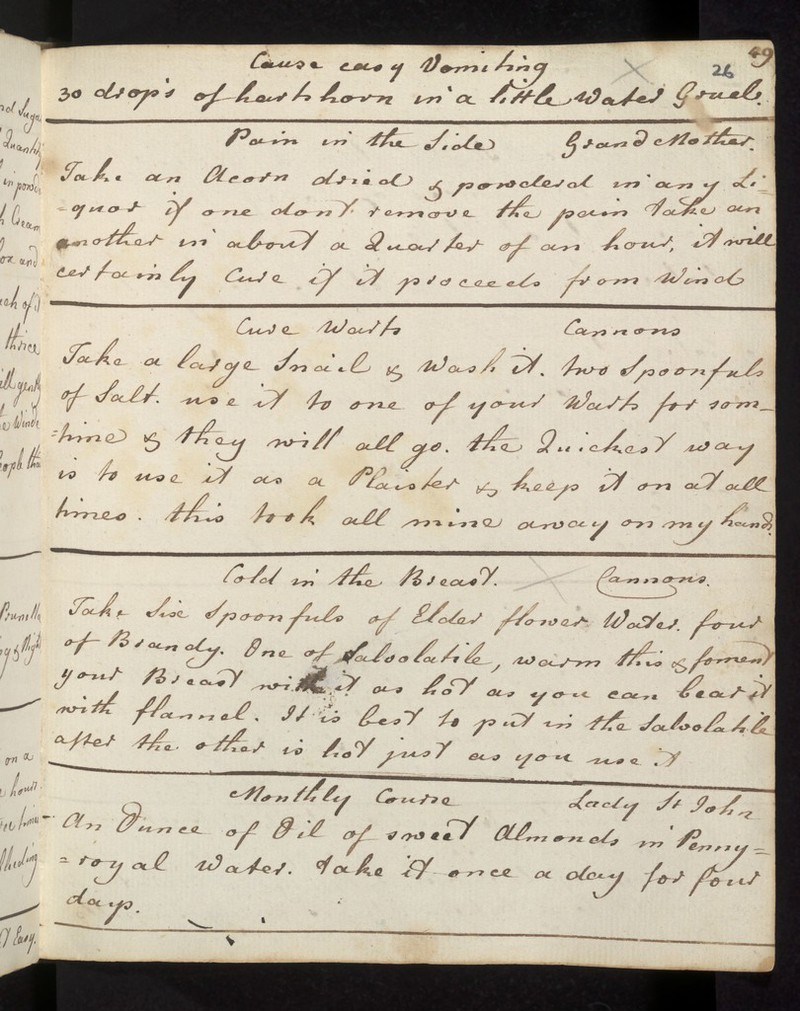 Cause easy Vomiting 26 49
30 drops of hartshorn in a little Water Gruel.
Pain in the Side Grand Mother.
Take an Acorn dried & powderd in any Li-
-quor if one dont remove the pain take an
another in about a Quarter of an hour, it will
certainly Cure if it proceeds from Wind
Cure Warts Cannons
Take a large Snail & Wash it. two Spoonfuls
of Salt. use it to one of your Warts for som-
=time & they will all go. the Quickest way
is to use it as a Plaister & keep it on at all
times. this took all mine away on my hands.
Cold in the Breast. Cannons.
Take Six Spoonfuls of Elder flower Water. four
of Brandy. One of Salvolatile, warm this & foment
your Breast with it as hot as you can bear it
with flannel. It is best to put in the Salvolatile
after the other is hot just as you use it
Monthly Course Lady St John
An Ounce of Oil of sweet Almonds in Penny=
=royal Water. take it once a day for four
days.